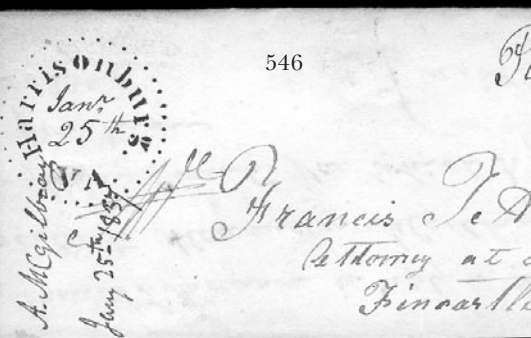 546
Harrisonburg
Jany
25th
Va
A. McGilbray
Jany 25th 1837
Francis T. A
Attorney at
Fincastle